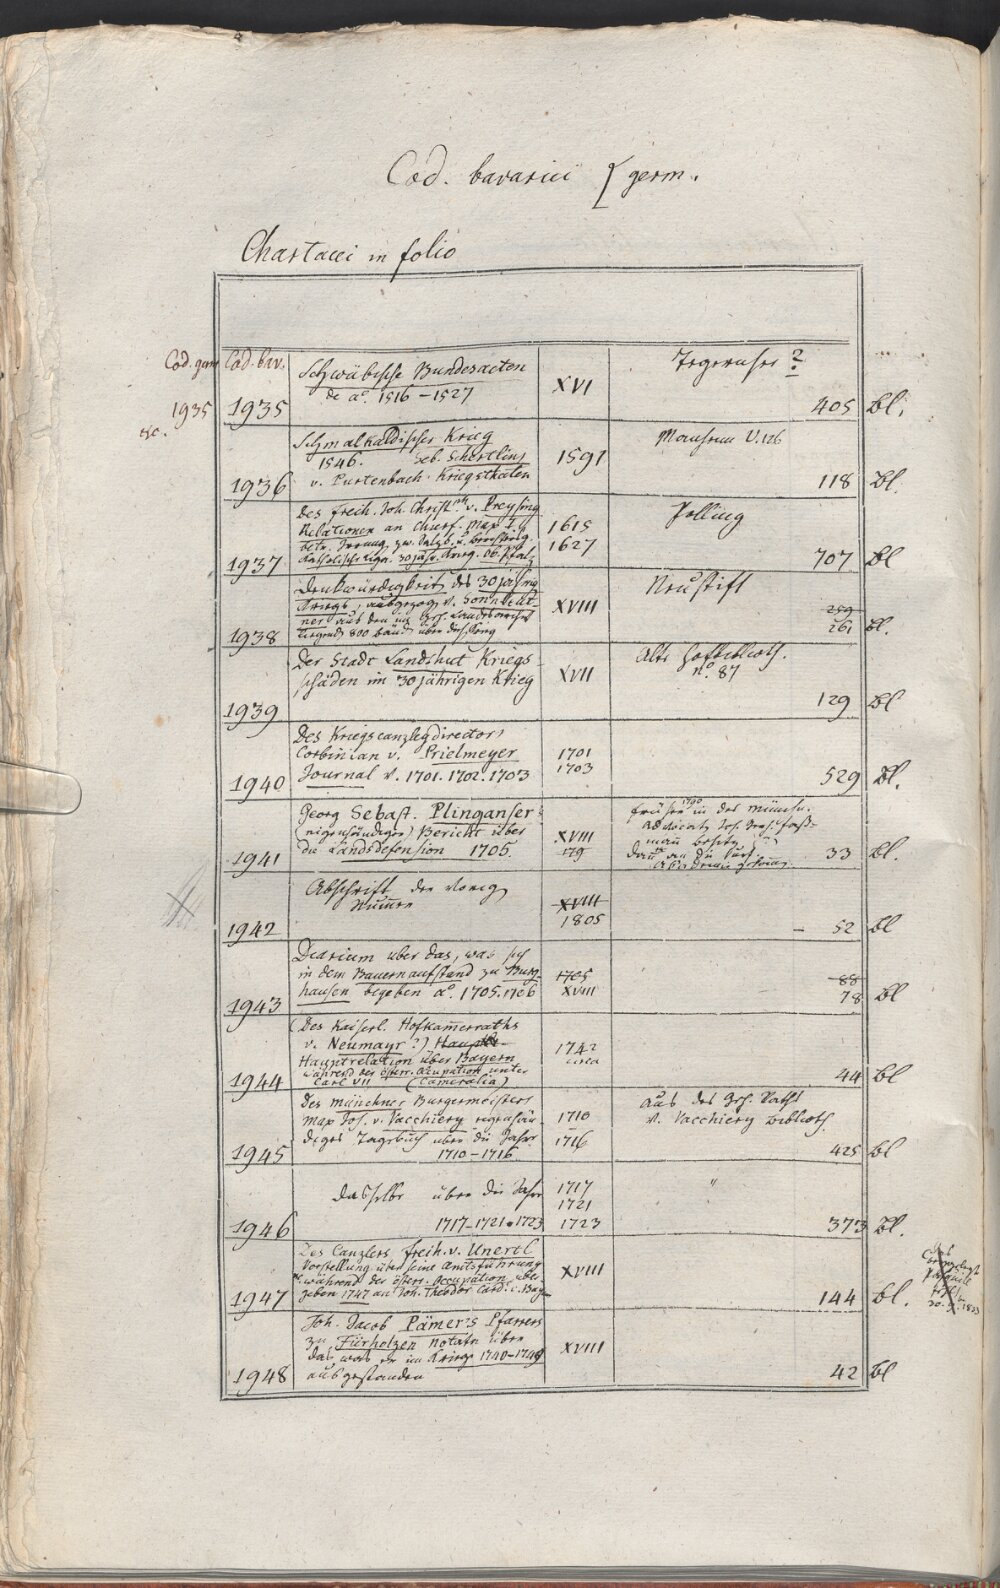 Cod. bavarici { germ.
Chartacei in folio
Cod. germ Cod. bav.
1935 &c.
1935 Schwäbische Bundesacten
de aº. 1516 – 1527
XVI
Tegernsee ?
405 Bl.
1936 Schmalkaldischer Krieg
1546. Seb. Schertlins
v. Purtenbach Kriegsthaten
1591
Manhemm V. 126
118 Bl.
1937 Des freih. Joh. Christ. v. Preysing
Relationen an churf. Max I
betr. Irrung. zw. Salzb. u.
Katholische Liga. 30 jähr. Krieg. Ob. Pfalz
1615
1627
Polling
707 Bl
1938 Denkwürdigkeit des 30 jährig
Kriegs, ausgezog v. Sonnleit-
ner aus den
liegend 800 bänd über dies. Krieg
XVIII
Neustift
259
261 Bl.
1939 Der Stadt Landshut Kriegs
schäden im 30 jährigen Krieg
XVII
Alte Hofbiblioth.
nº. 87
129 Bl
1940 Des Kriegscanzleydirectors
Corbinian v. Prielmeyer
Journal v. 1701. 1702. 1703
1701
1703
529 Bl.
1941 Georg Sebast. Plinganser's
(eigenhändiger) Bericht über
die Landsdefension 1705.
XVIII
179
früher 1790 in des Münchn.
Advocat Jos.
man besitz
dan an die Churf.
33 Bl.
1942 Abschrift der vorig
Numer
XVIII
1805
– 52 Bl
1943 Diarium uber das, was sich
in dem Bauernaufstand zu Burg-
hausen begeben aº. 1705. 1706
1705
XVIII
88
78 Bl
1944 (Des Kaiserl. Hofkamerraths
v. Neumayr ?) Haupt
Hauptrelation über Bayern
während der österr. Occupation unter
Carl VII (Cameralia)
1742
circa
44 Bl
1945 Des Münchner Burgermeisters
Max Jos. v. Vacchiery eigenhän-
diges Tagebuch uber die Jahre
1710 – 1716
1710
–
1716
Aus des Geh. Raths
v. Vacchiery Biblioth.
425 Bl
1946 dasselbe über die Jahre
1717 – 1721 • 1723
1717
1721
1723
"
373 Bl.
1947 Des Canzlers freih. v. Unertl
Vorstellung über seine Amtsführung
während der österr. Occupation über
geben 1747 an Joh. Theodor Card. v. Bay-
XVIII
144 Bl.
1948 Joh. Jacob Pämer's Pfarrers
zu Fürholzen Notate über
das was er im Kriege 1740–1749
ausgestanden
XVIII
42 Bl